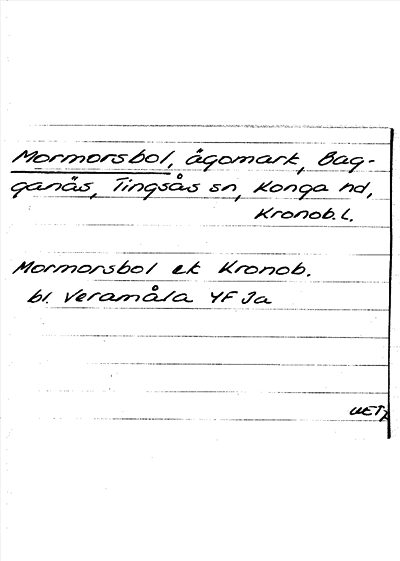 Mormorsbol, ägomark, Bag-
ganäs, Tingsås sn, Konga hd,
Kronob. l.
Mormorsbol ek Kronob.
bl. Veramåla 4F Ja